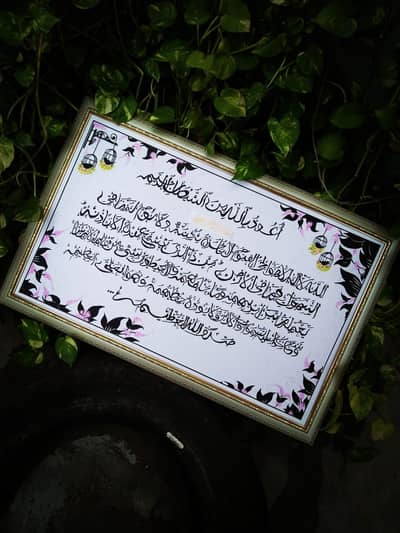 أعوذ بالله من الشيطان الرجيم
الله لا إله إلا هو الحي القيوم لا تأخذه سنة ولا نوم له ما في
السموات وما في الأرض من ذا الذي يشفع عنده إلا بإذنه
يعلم ما بين أيديهم وما خلفهم ولا يحيطون بشيء من علمه إلا بما
شاء وسع كرسيه السموات والأرض ولا يؤده حفظهما وهو العلي العظيم
صدق الله العظيم